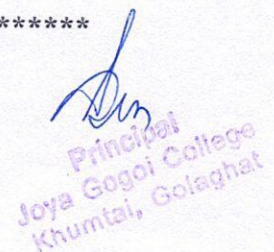 ******
Principal
Joya Gogoi College
Khumtai, Golaghat